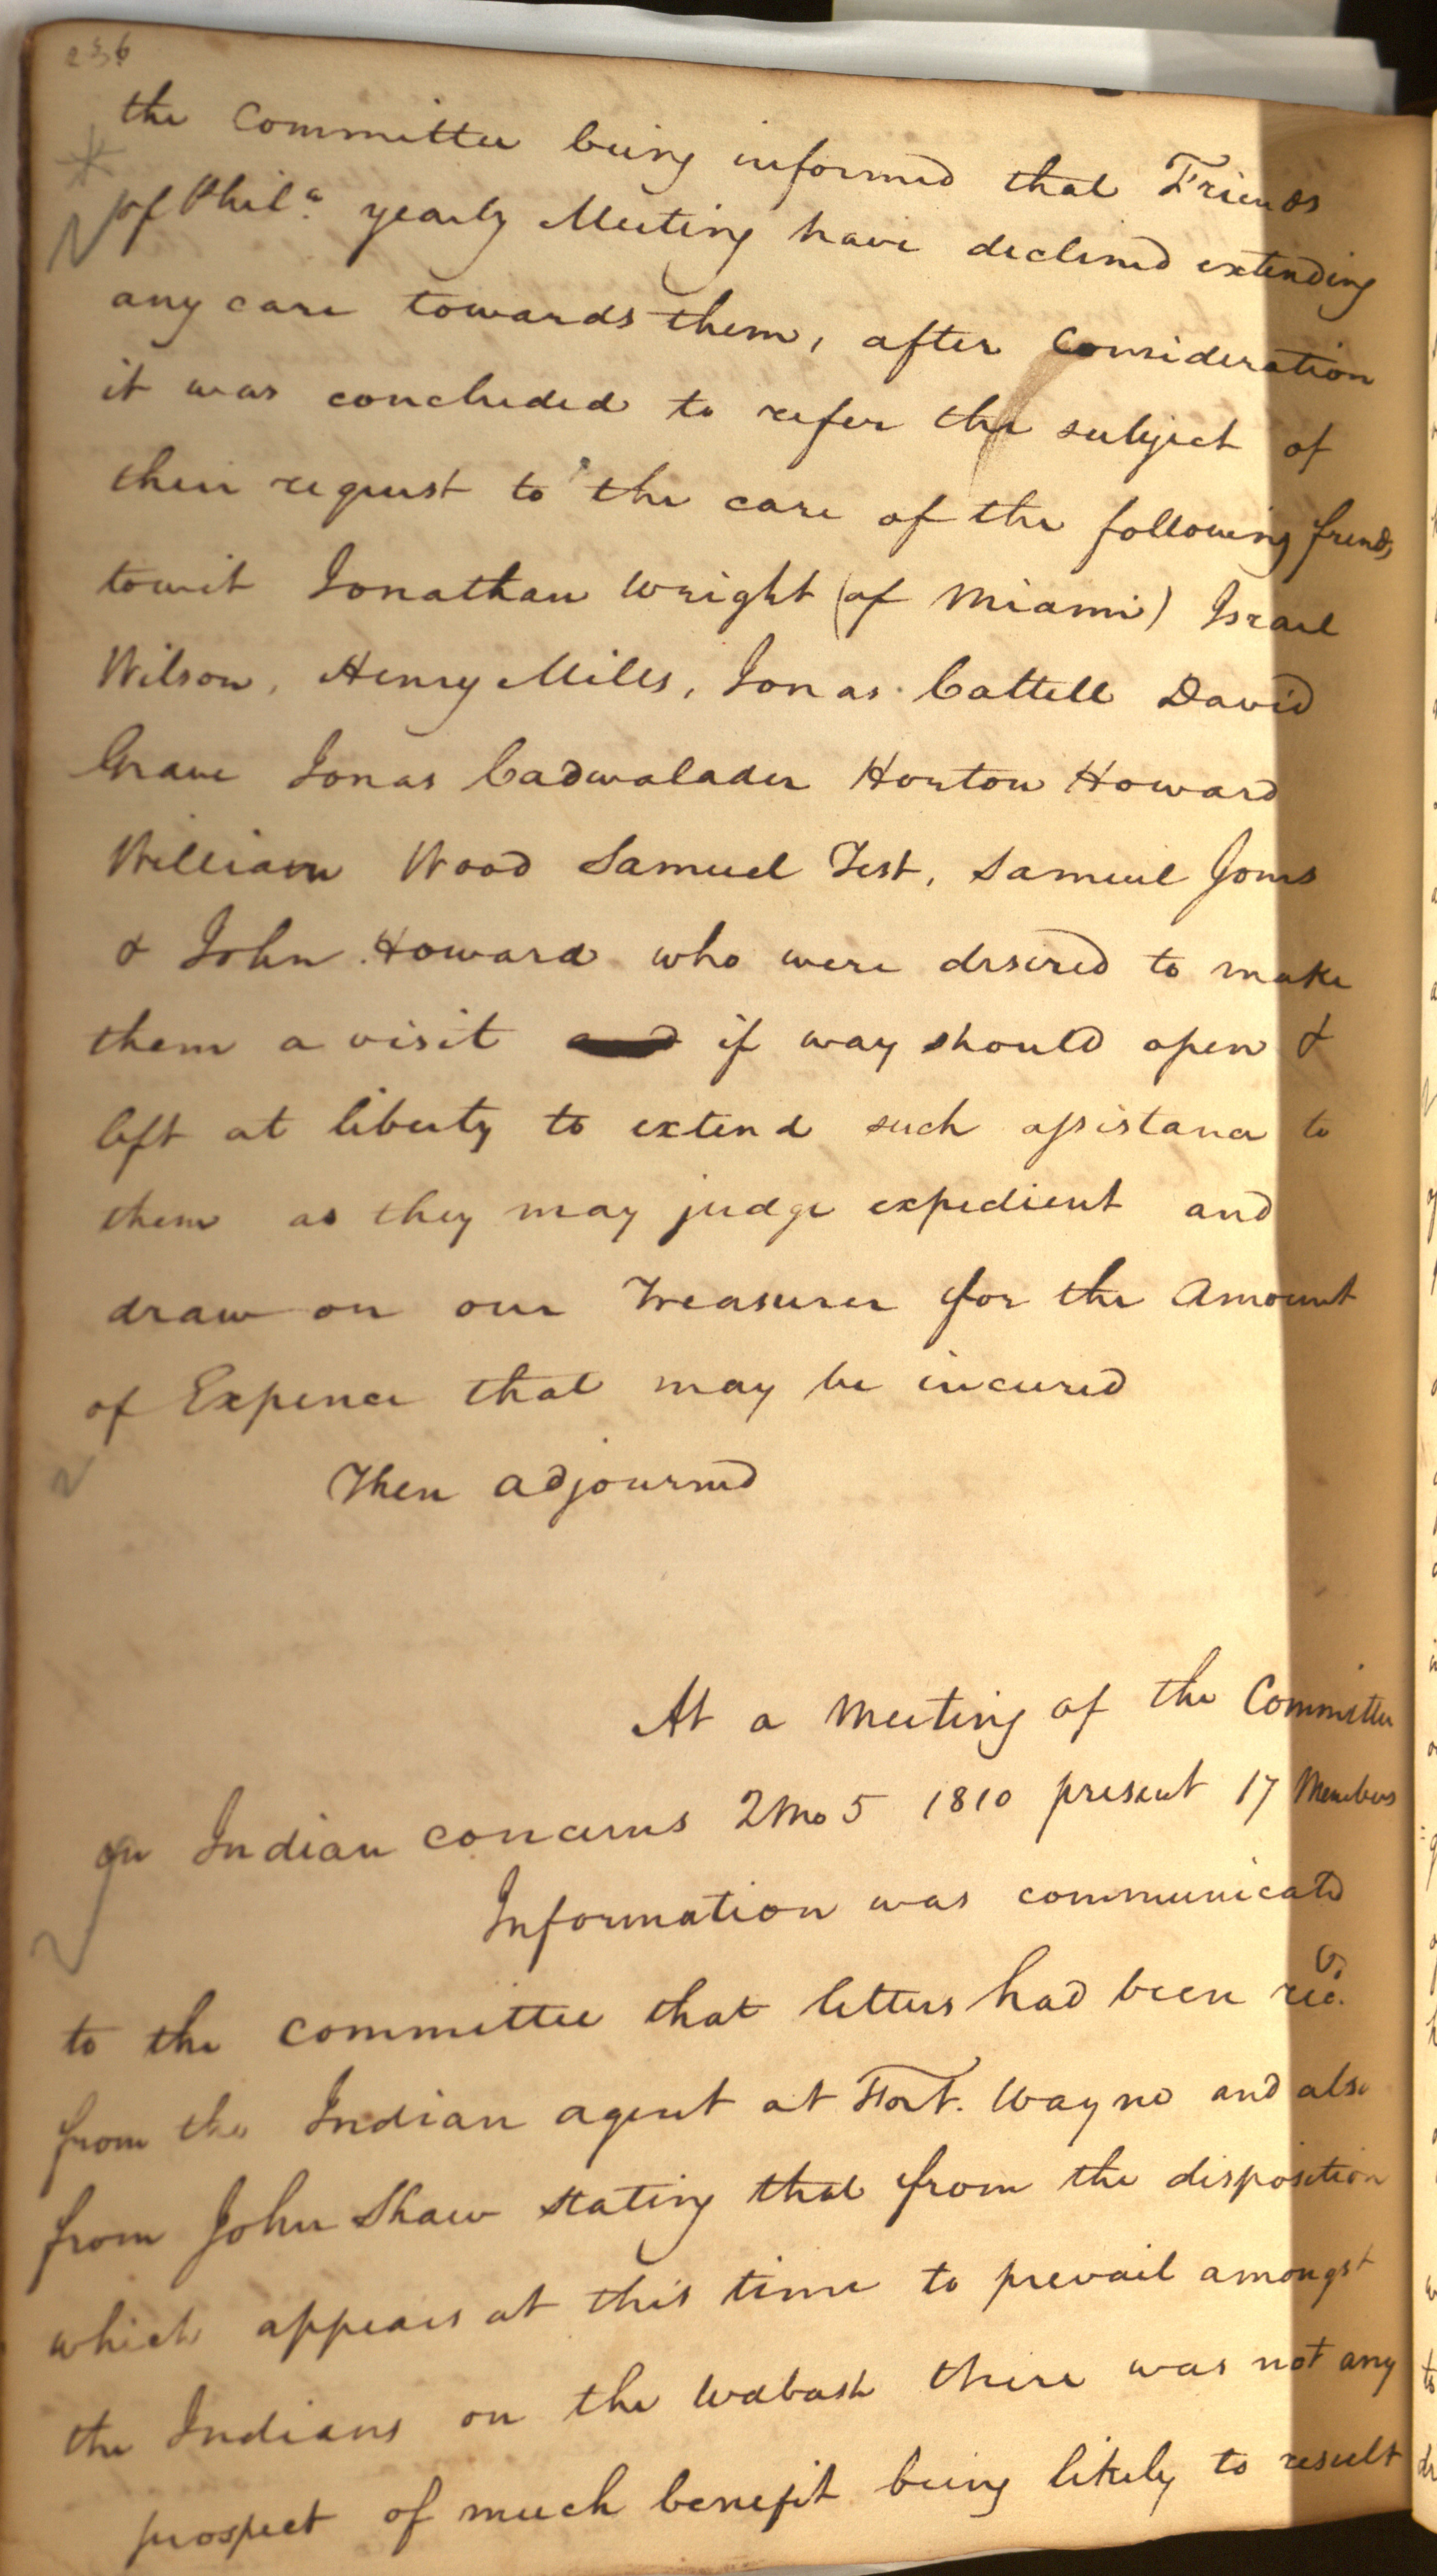 236
the Committee being informed that Friends
of Philª. yearly Meeting have declined extending
any care towards them, after Consideration
it was concluded to refer the subject of
their request to the care of the following frends
towit Jonathan Wright (of Miami) Israel
Wilson, Henry Mills, Jonas Cattell David
Grave Jonas Cadwalader Horton Howard
William Wood Samuel Test, Samuel Jones
& John Howard who were desired to make
them a visit and if way should open &
left at liberty to extend such assistance to
them as they may judge expedient and
draw on our Treasurer for the Amount
of Expence that may be incured
Then adjourned
At a Meeting of the Committee
on Indian concerns 2mo 5 1810 present 17 Members
Information was communicated
to the committee that letters had been recd.
from the Indian agent at Fort. Wayne and also
from John Shaw stating that from the disposition
which appears at this time to prevail amongst
the Indians on the Wabash there was not any
prospect of much benefit being likely to result